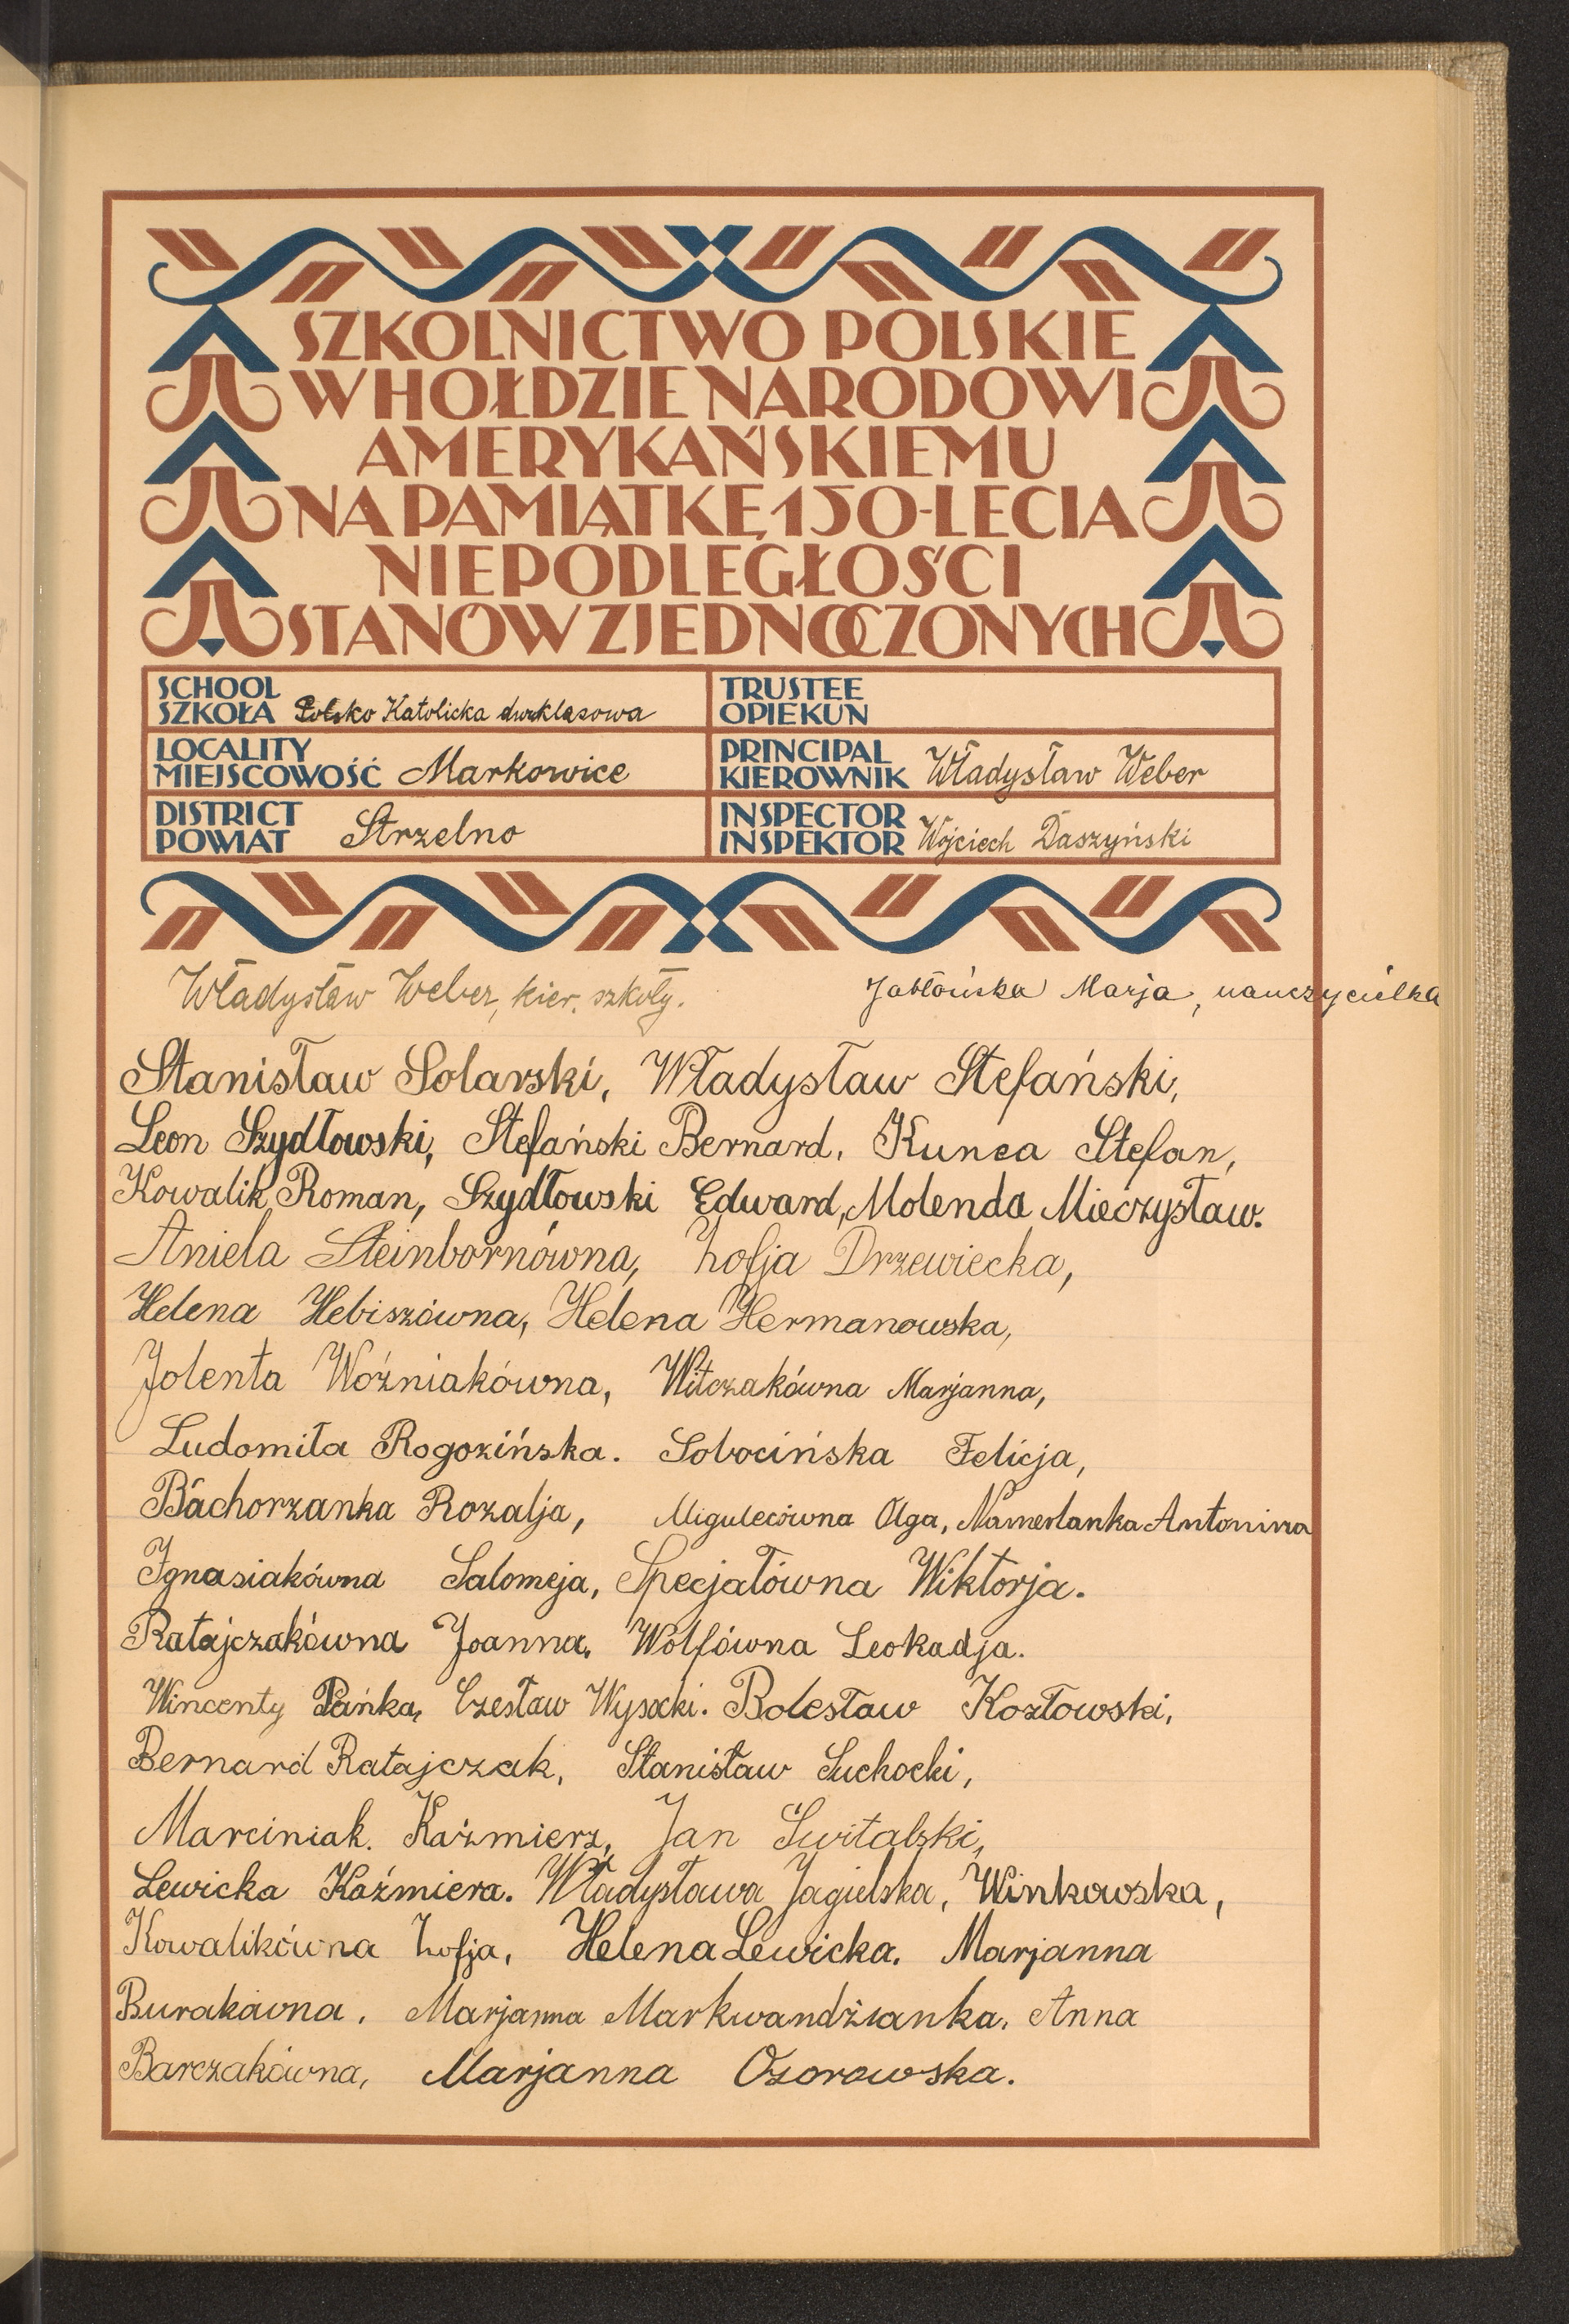 SZKOLNICTWO POLSKIE
W HOŁDZIE NARODOWI
AMERYKAŃSKIEMU
NA PAMIĄTKĘ 150-LECIA
NIEPODLEGŁOŚCI
STANÓW ZJEDNOCZONYCH
SCHOOL
SZKOŁA Polsko Katolicka dwuklasowa
TRUSTEE
OPIEKUN
LOCALITY
MIEJSCOWOŚĆ Markowice
PRINCIPAL
KIEROWNIK Władysław Weber
DISTRICT
POWIAT Strzelno
INSPECTOR
INSPEKTOR Wojciech Daszyński
Władysław Weber, kier. szkoły. Jabłońska Marja, nauczycielka
Stanisław Solarski, Władysław Stefański,
Leon Szydłowski, Stefański Bernard, Kunca Stefan,
Kowalik Roman, Szydłowski Edward, Molenda Mieczysław.
Aniela Steinbornówna, Zofja Drzewiecka,
Helena Hebiszówna, Helena Hermanowska,
Jolenta Woźniakówna, Witczakówna Marjanna,
Ludomiła Rogozińska. Sobocińska Felicja,
Bachorzanka Rozalja, Migulecówna Olga, Namerlanka Antonina
Ignasiakówna Salomeja, Specjałówna Wiktorja.
Ratajczakówna Joanna, Wolfówna Leokadja.
Wincenty Pańka, Czesław Wysocki. Bolesław Kozłowski,
Bernard Ratajczak, Stanisław Suchocki,
Marciniak. Kaźmierz, Jan Świtalski,
Lewicka Kaźmiera. Władysława Jagielska, Winkowska,
Kowalikówna Zofja, Helena Lewicka. Marjanna
Burakówna, Marjanna Markwandżianka, Anna
Barczakówna, Marjanna Ozorowska.